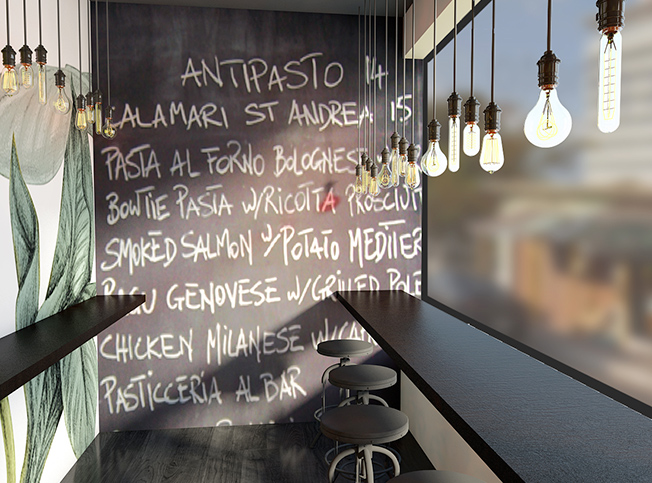 ANTIPASTO 14
CALAMARI ST ANDREA 15
PASTA AL FORNO BOLOGNES
BOWTIE PASTA W/RICOTTA PROSCIUT
SMOKED SALMON W/POTATO MEDITER
RAGU GENOVESE W/GRILLED POLE
CHICKEN MILANESE W/CA
PASTICCERIA AL BAR